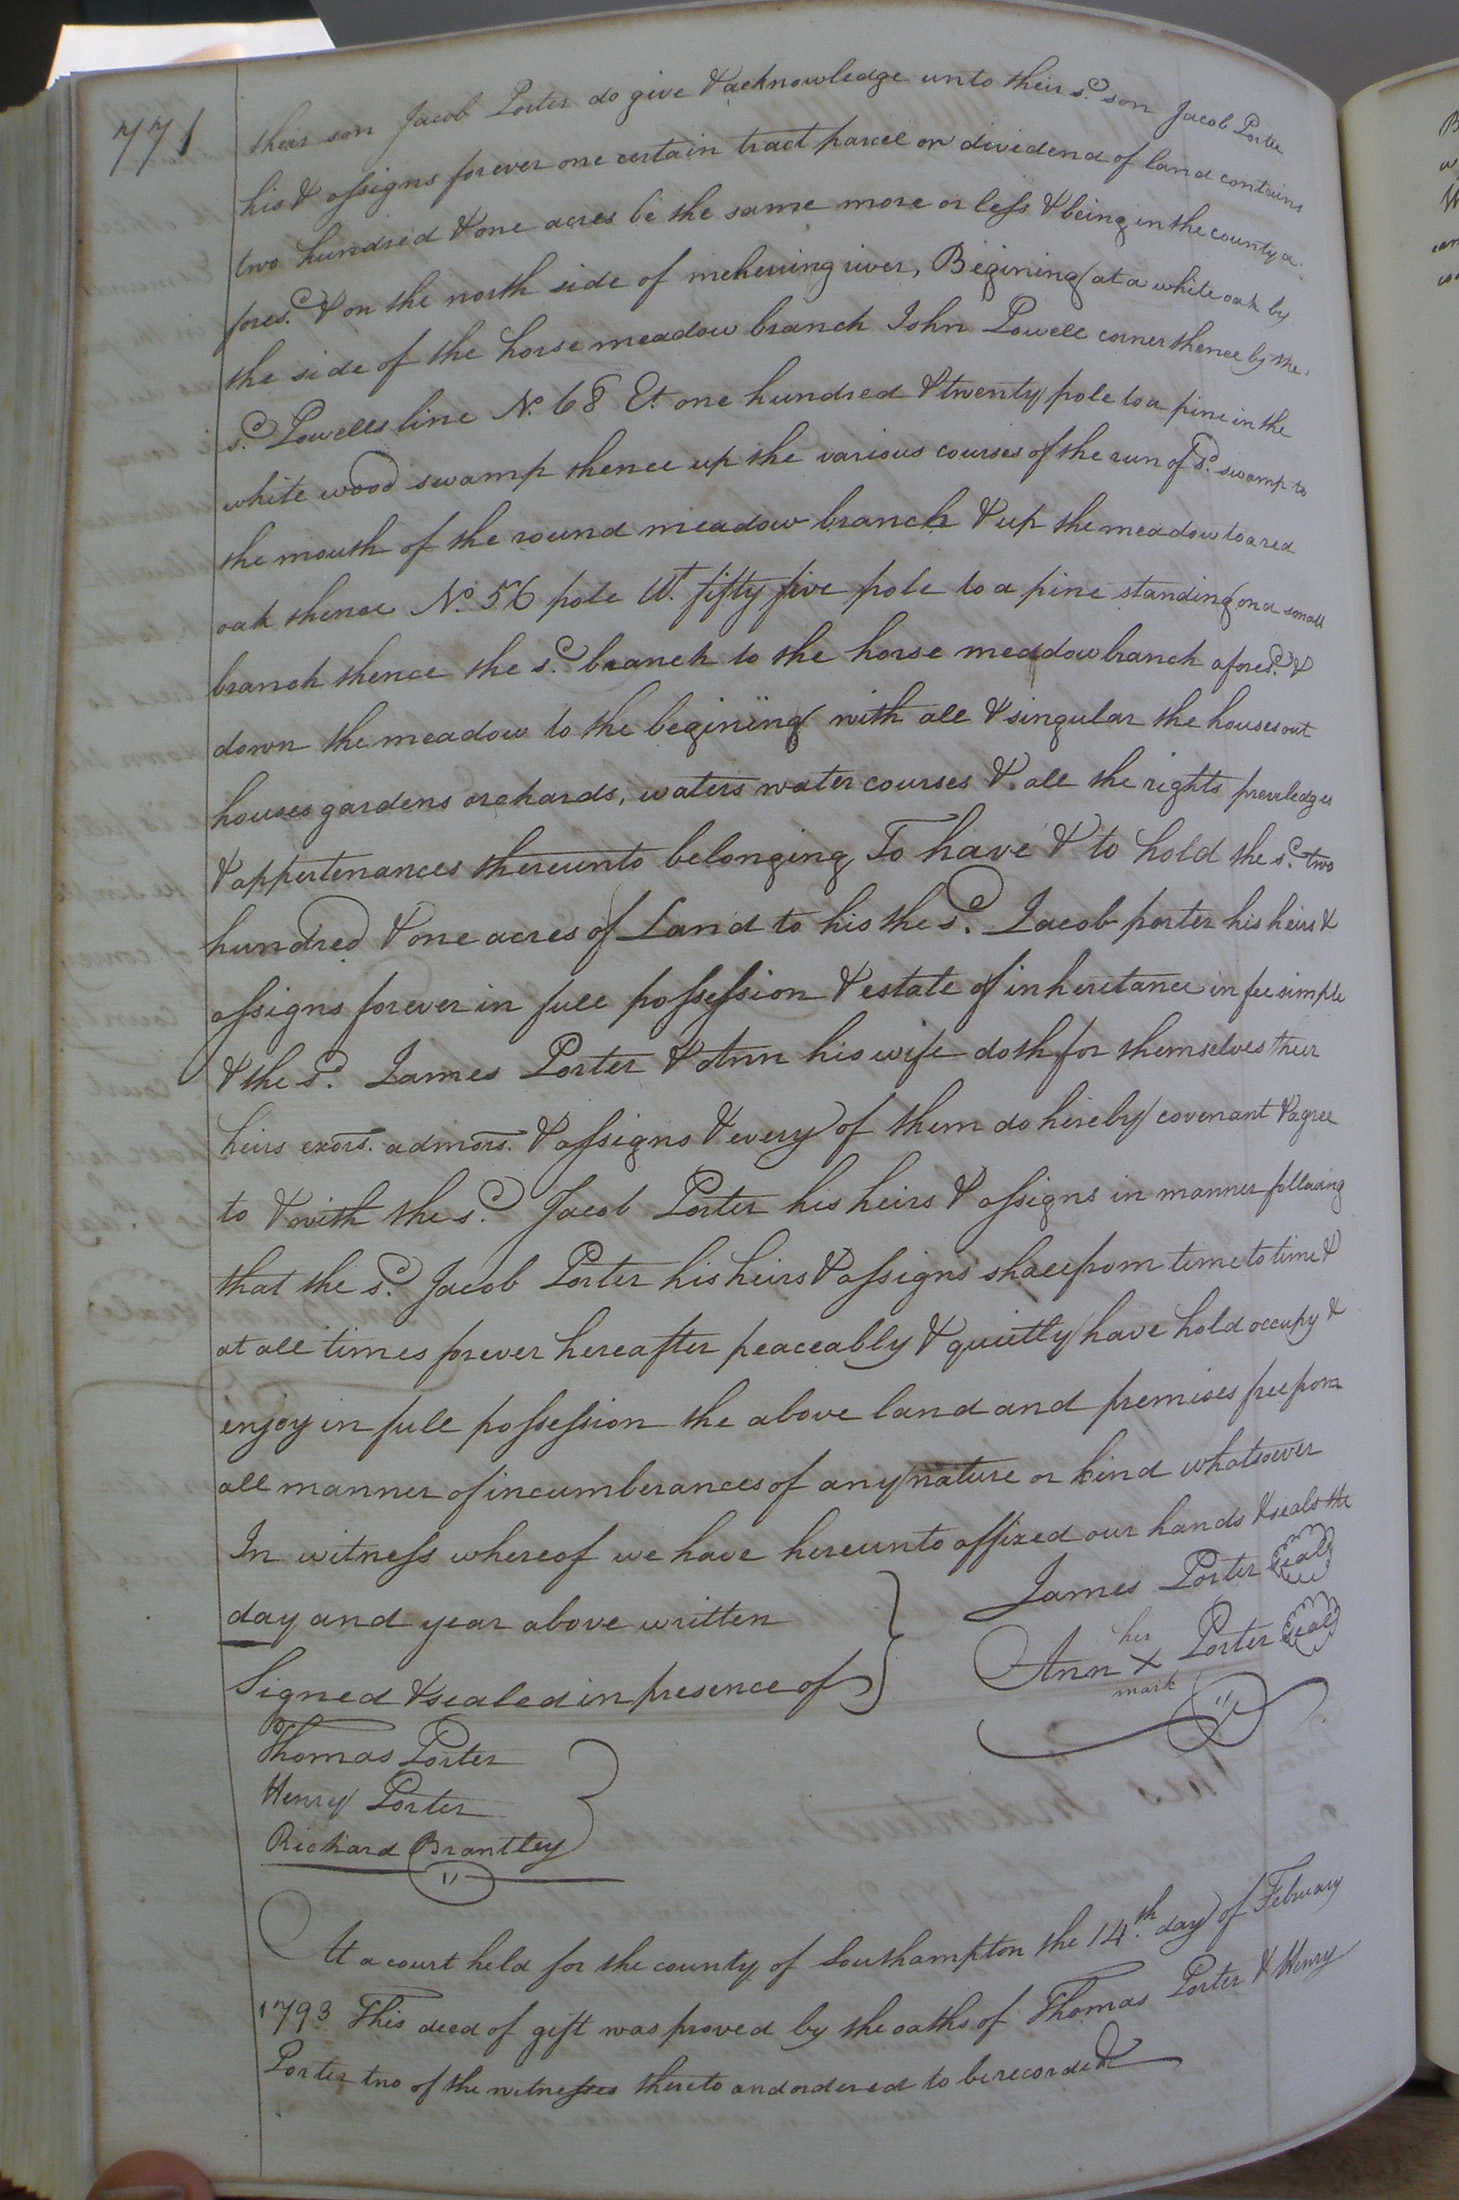 771
their son Jacob Porter do give & acknowledge unto their sd. son Jacob Porter
his & assigns forever one certain tract parcel or dividend of land containing
two hundred & one acres be the same more or less & being in the county a-
foresd. & on the north side of meherring river, Begining at a white oak by
the side of the horse meadow branch John Powell corner thence by the
sd. Powells line No. 68 Et. one hundred & twenty pole to a pine in the
white wood swamp thence up the various courses of the run of sd. swamp to
the mouth of the round meadow branch & up the meadow to a red
oak thence No. 56 pole Wt. fifty five pole to a pine standing on a small
branch thence the sd. branch to the horse meadow branch aforesd. &
down the meadow to the begining with all & singular the houses out
houses gardens orchards, waters water courses & all the rights preveledges
& appertenances thereunto belonging To have & to hold the sd. two
hundred & one acres of Land to his the sd. Jacob porter his heirs &
assigns forever in full possession & estate of inheritance in fee simple
& the sd. James Porter & Ann his wife doth for themselves their
heirs exors. admors. & assigns & every of them do hereby covenant & agree
to & with the sd. Jacob Porter his heirs & assigns in manner following
that the sd. Jacob Porter his heirs & assigns shall from time to time &
at all times forever hereafter peaceably & quietly have hold occupy &
enjoy in full possession the above land and premises free from
all manner of incumberances of any nature or kind whatsoever
In witness whereof we have hereunto affixed our hands & seals the
day and year above written
James Porter seal
Signed & sealed in presence of
her
Ann X Porter seal
mark
Thomas Porter
Henry Porter
Richard Brantley
At a court held for the county of Southampton the 14th. day of February
1793 This deed of gift was proved by the oaths of Thomas Porter & Henry
Porter two of the witnesses thereto and ordered to be recorded